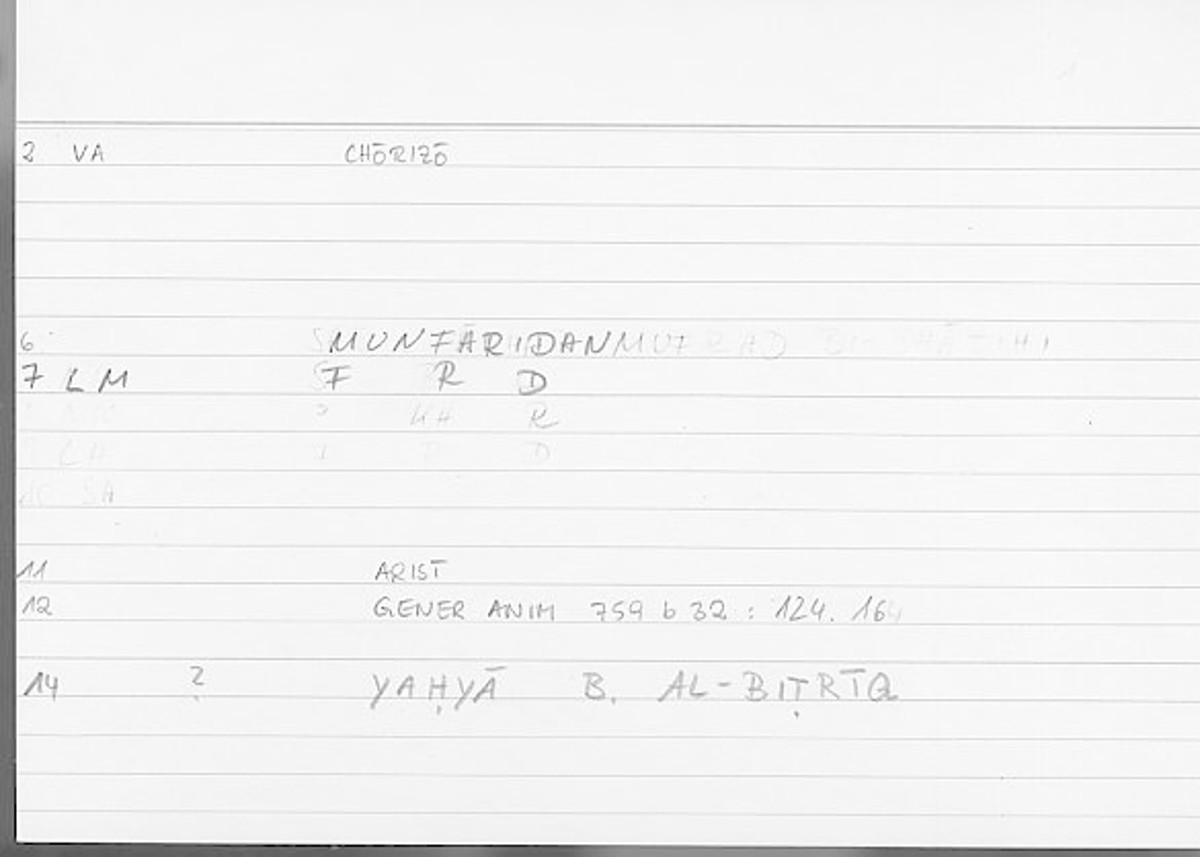 2 VA CHŌRIZŌ
6 MUNFARIDAN
7 LM F R D
KH R
D
10 SA
11 ARIST
12 GENER ANIM 759 b 32 : 124. 16
14 ? YAḤYĀ B. AL-BIṬRĪQ